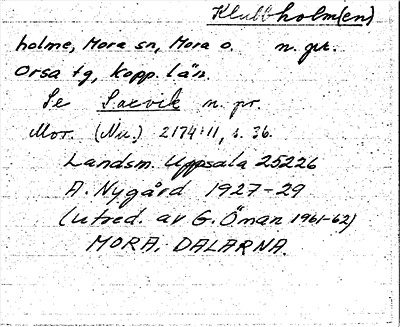 Klubbholm(en)
holme, Mora sn, Mora o. n. gr.
Orsa tg, Kopp. län.
Se Saxvik n. pr.
Mor. (Nu.) 2174:11, s. 36.
Landsm. Uppsala 25226
A. Nygård 1927-29
(utred. av G. Öman 1961-62)
MORA, DALARNA.